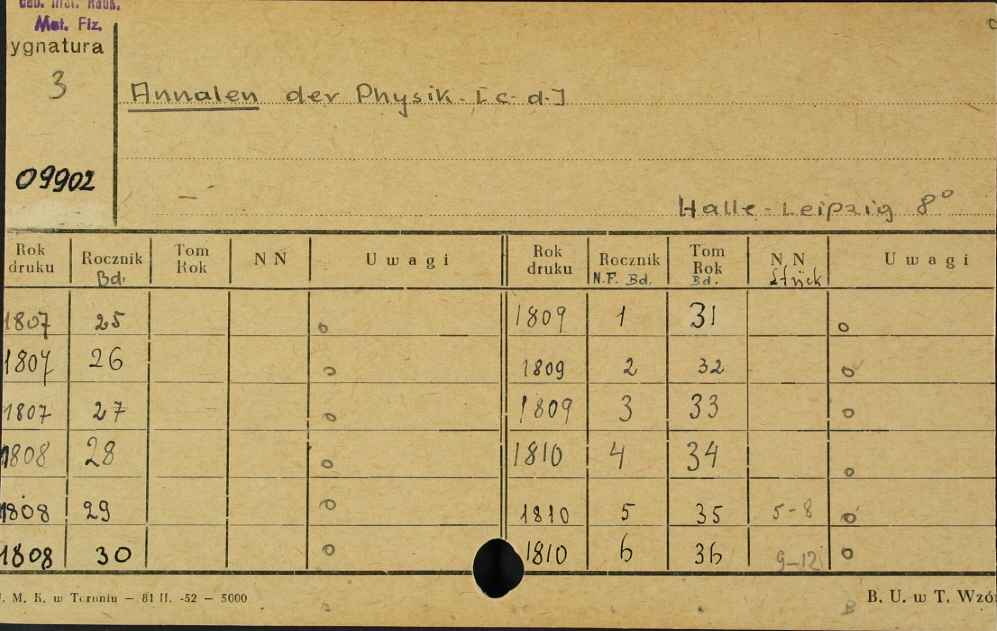 Mat. Fiz.
ygnatura
3
Annalen der Physik. [c. d.]
09902
Halle - Leipzig 8°
Rok druku Rocznik Bd. Tom Rok N N U w a g i Rok druku Rocznik N.F. Bd. Tom Rok Bd. N N Stück U w a g i
1807 25 o 1809 1 31 o
1807 26 o 1809 2 32 o
1807 27 o 1809 3 33 o
1808 28 o 1810 4 34 o
1808 29 o 1810 5 35 5-8 o
1808 30 o 1810 6 36 9-12 o
. M. K. w Toruniu — 81 II. -52 — 5000
B. U. w T. Wzó